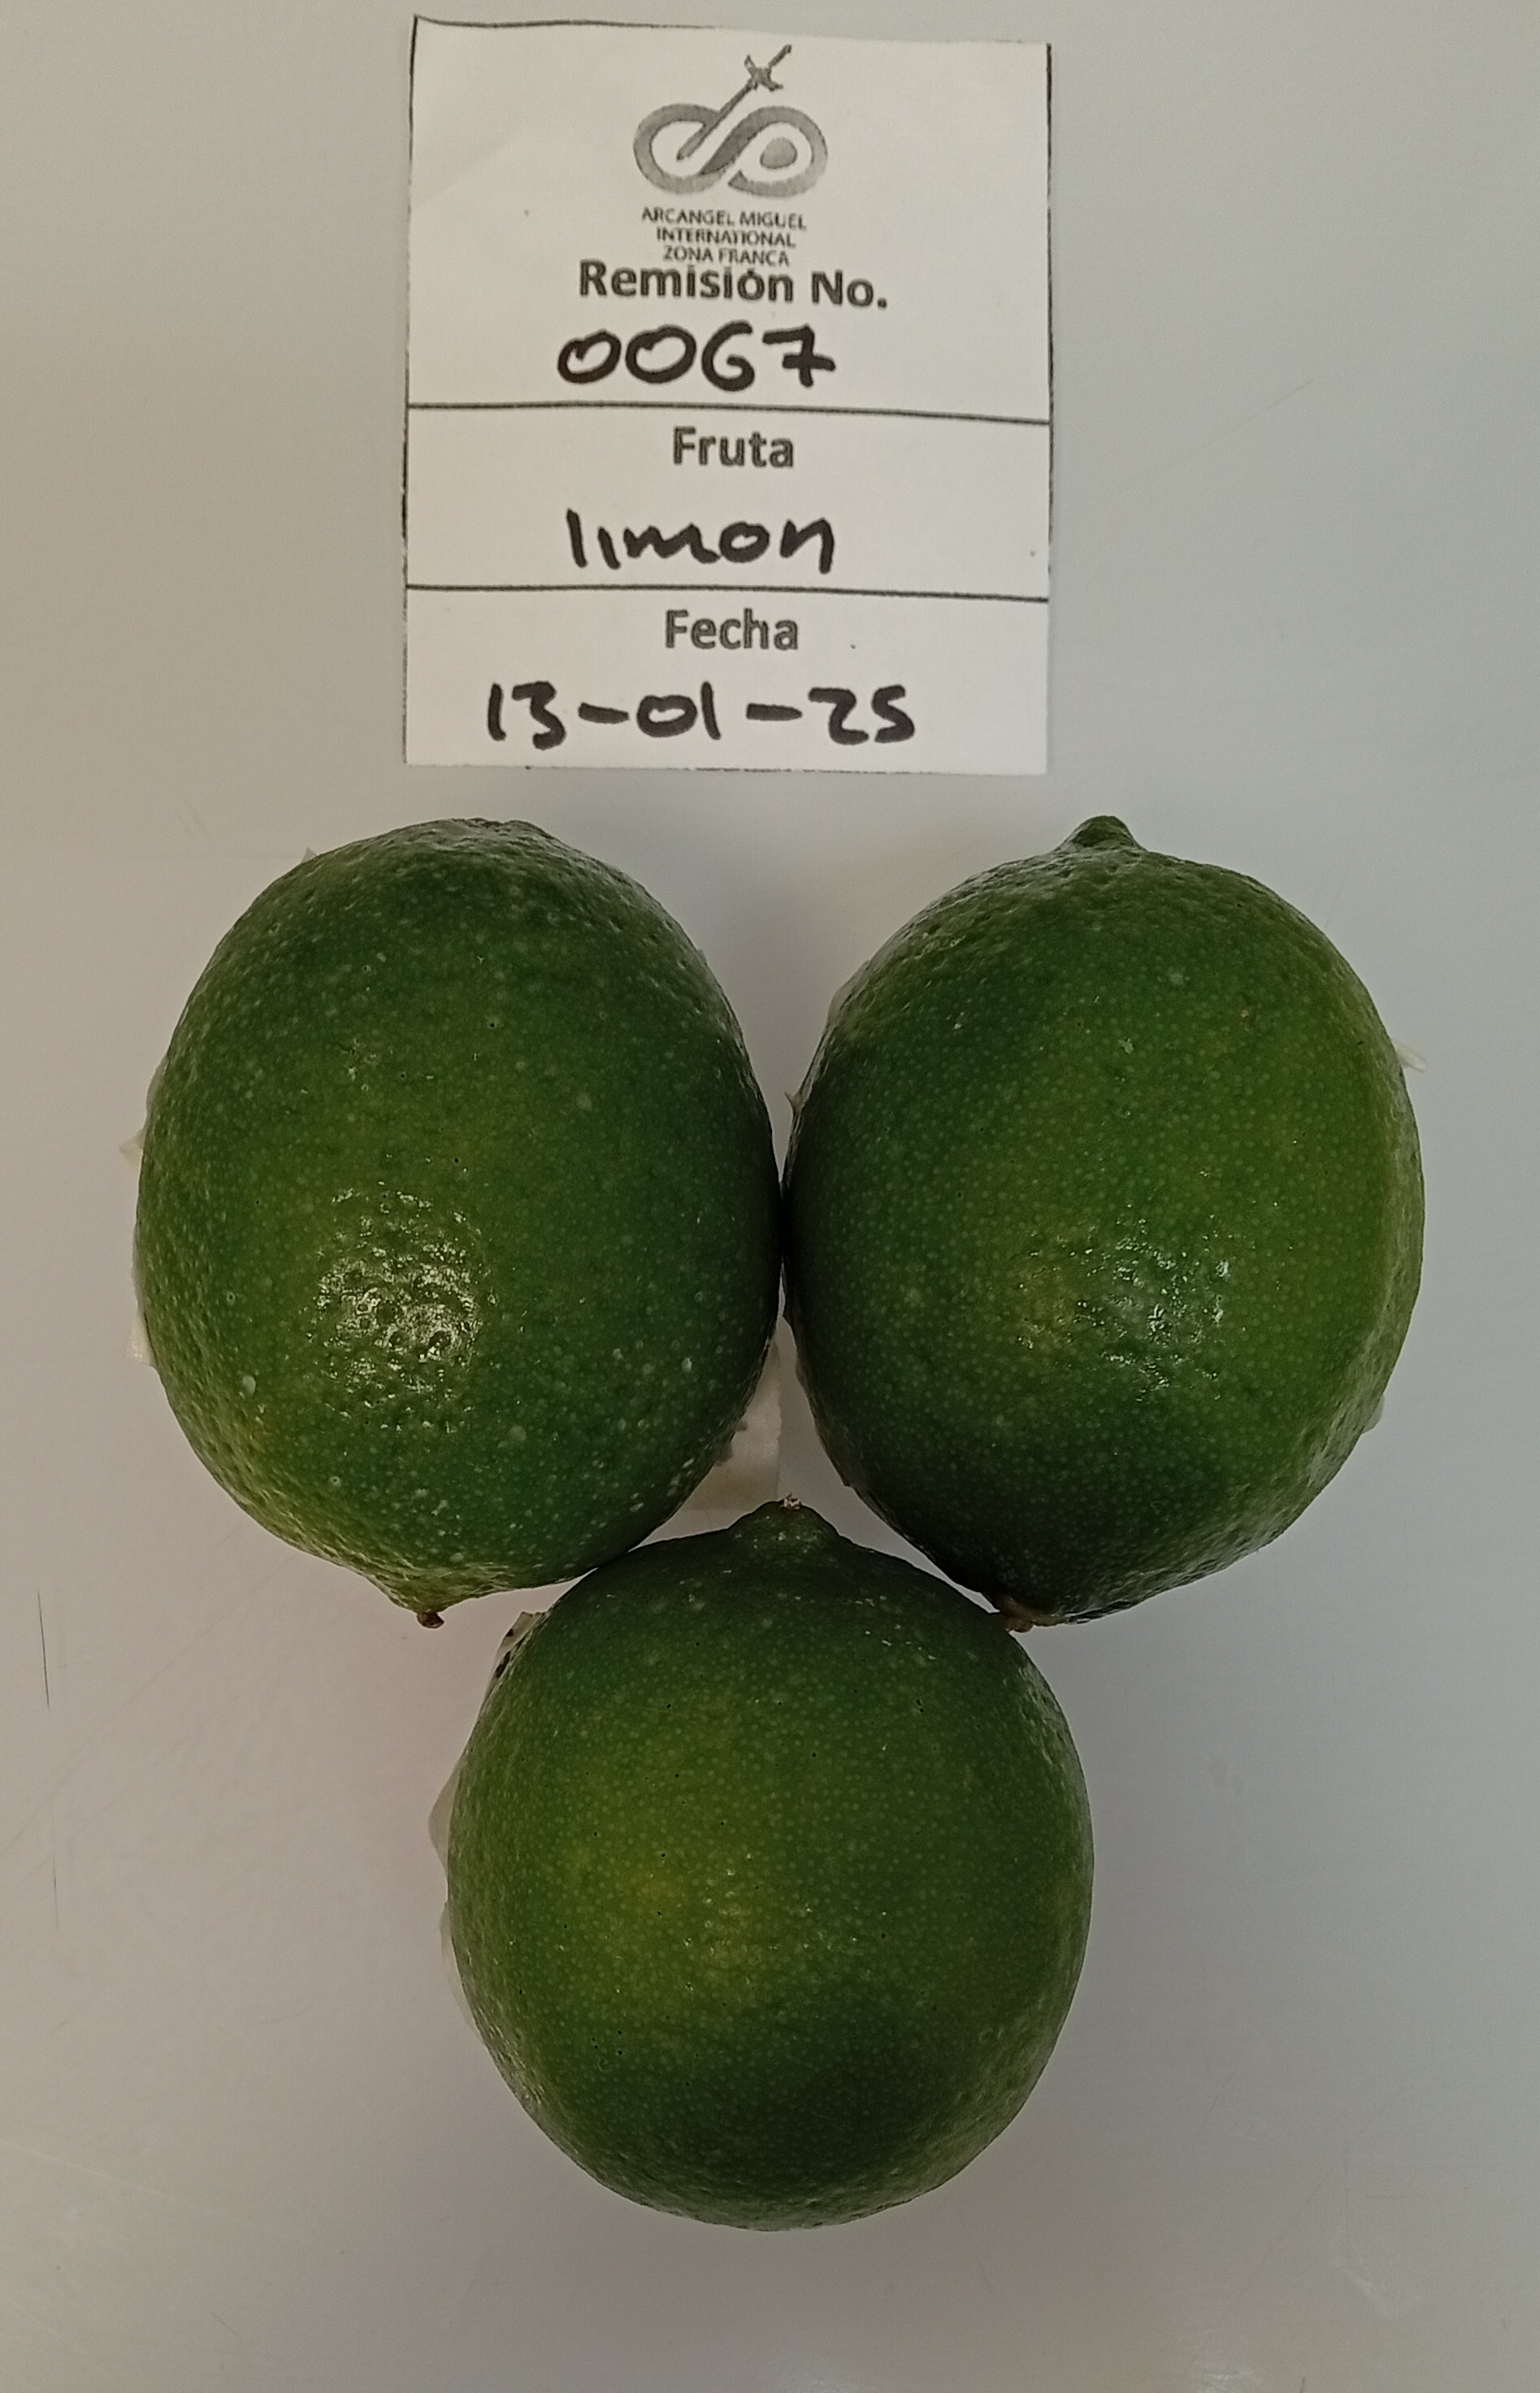 ARCANGEL MIGUEL
INTERNATIONAL
ZONA FRANCA
Remisión No.
0067
Fruta
limon
Fecha
13-01-25